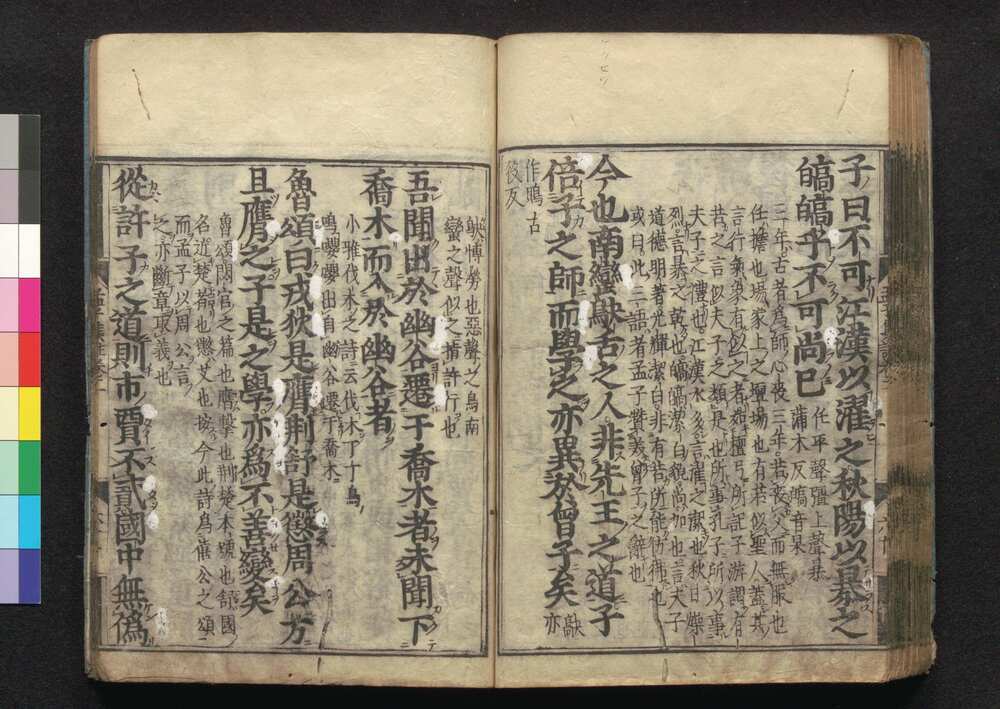 子曰不可江漢以濯之秋陽以暴之
皜皜乎不可尚已 任平聲彊上聲暴
蒲木反皜音杲
三年古者爲師心喪三年若喪父而無服也
任擔也場冢上之壇場也有若似聖人蓋其
言行氣象有似之者如檀弓所記子游謂有
若之言似夫子之類是也所事孔子所以事
夫子之禮也江漢水多言濯之潔也秋日燥
烈言暴之乾也皜皜潔白貌尚加也言夫子
道德明著光輝潔白非有若所能彷彿也
或曰此三語者孟子贊美曾子之辭也
今也南蠻鴃舌之人非先王之道子
倍子之師而學之亦異於曾子矣 鴃亦
作鵙古
役反
鴃博勞也惡聲之鳥南
蠻之聲似之指許行也
吾聞出於幽谷遷于喬木者未聞下
喬木而入於幽谷者
小雅伐木之詩云伐木丁丁鳥
鳴嚶嚶出自幽谷遷于喬木
魯頌曰戎狄是膺荊舒是懲周公方
且膺之子是之學亦爲不善變矣
魯頌閟宮之篇也膺擊也荊楚本號也舒國
名近楚者也懲艾也按今此詩爲僖公之頌
而孟子以周公言
之亦斷章取義也
從許子之道則市賈不貳國中無僞